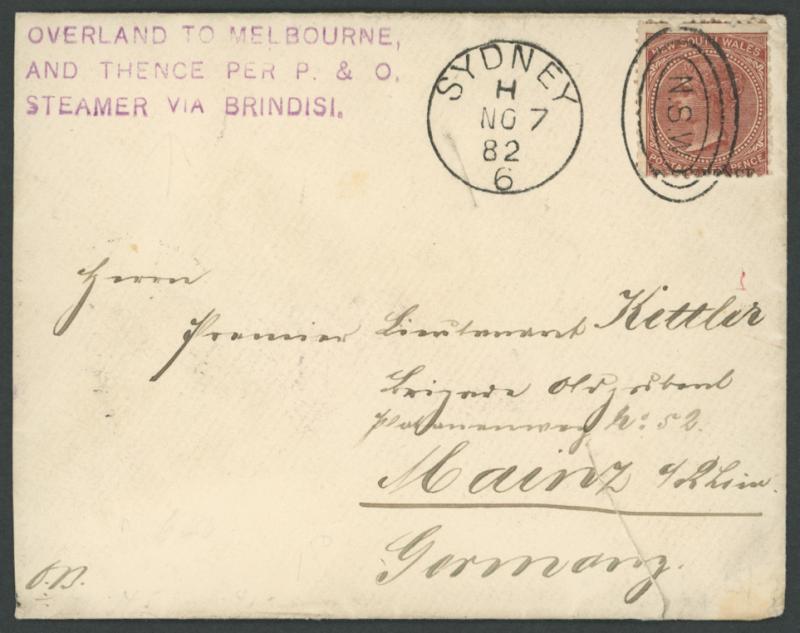 OVERLAND TO MELBOURNE,
AND THENCE PER P. & O.
STEAMER VIA BRINDISI.
SYDNEY
H
NO 7
82
6
NEW SOUTH WALES
N.S.W
PENCE
Herrn
Premier Lieutenant Kettler
Brigade
No: 52.
Mainz a/Rhein.
Germany.